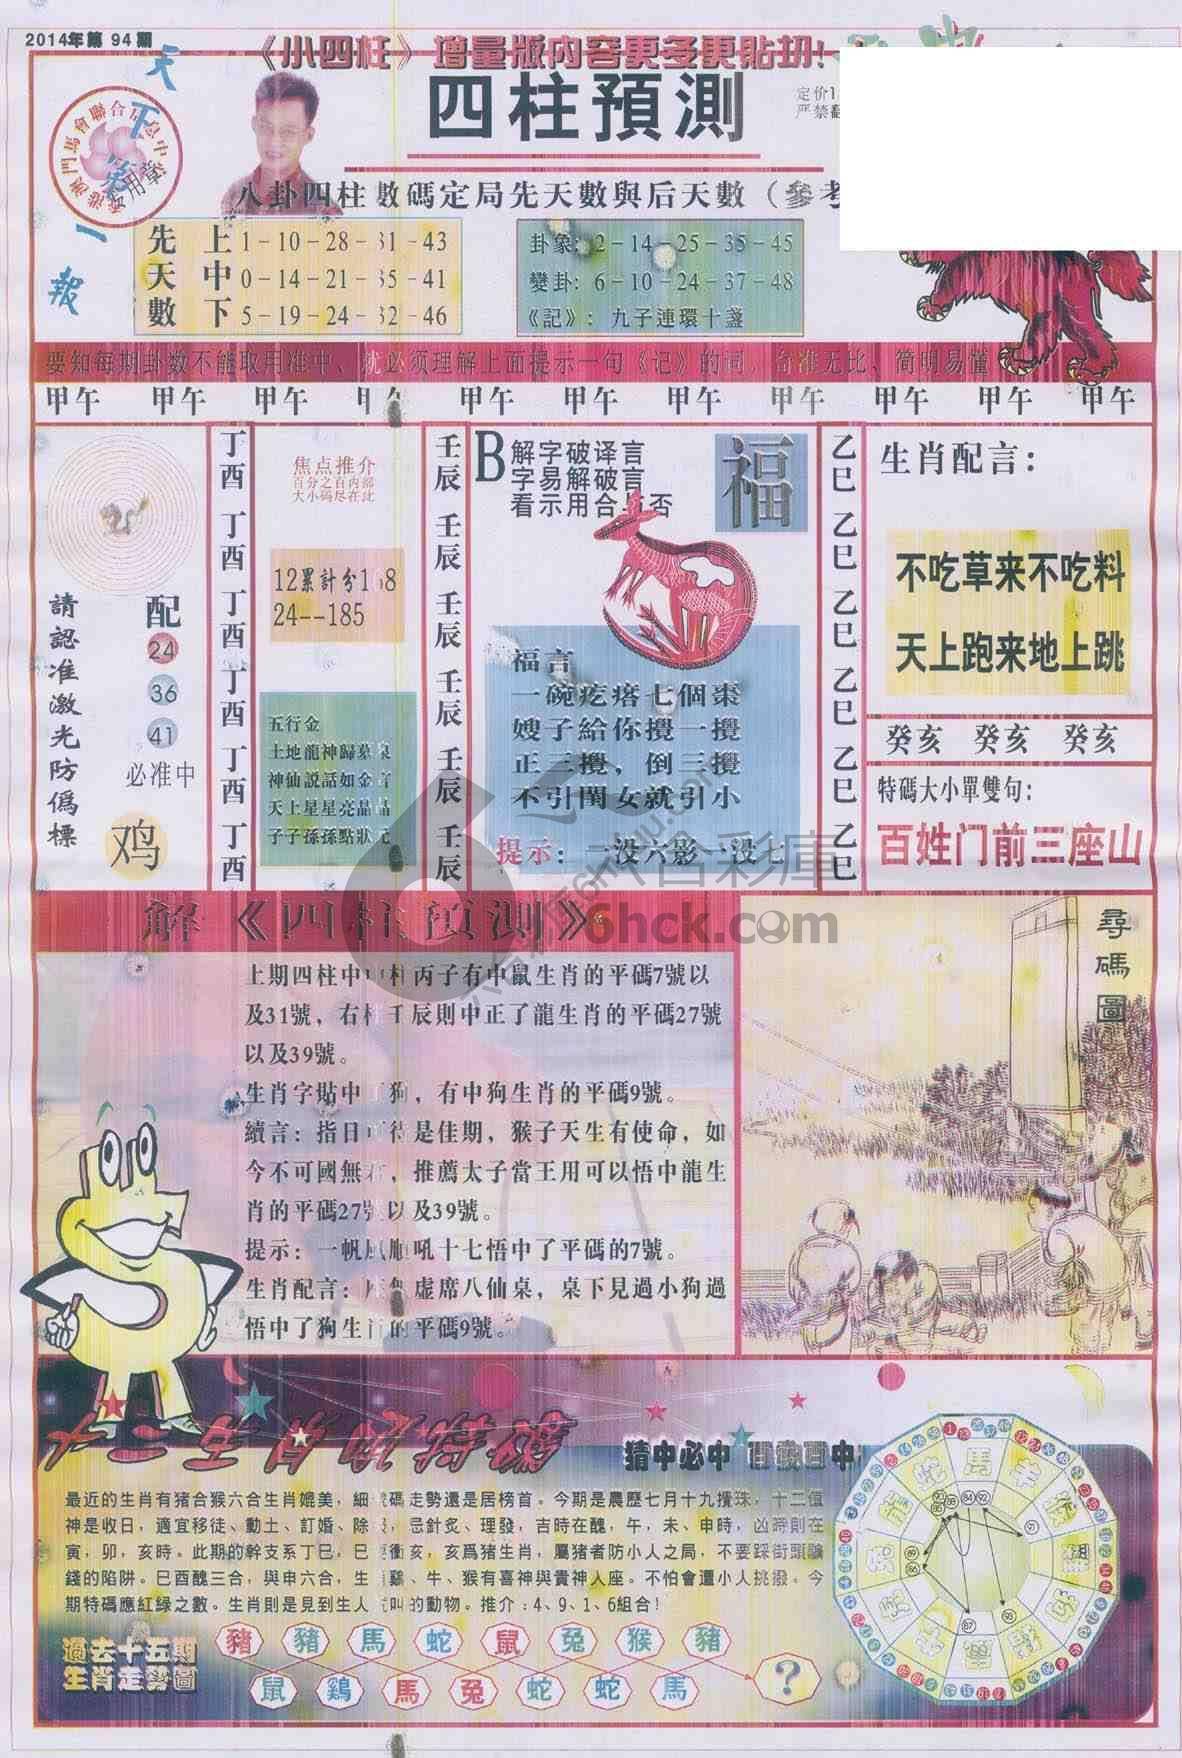 2014年第 94 期
《小四柱》增量版内容更多更贴切!
天下第一報
四柱預測
定价1
严禁翻
八卦四柱數碼定局先天數與后天數（參考
先天數
上 1-10-28-31-43
中 0-14-21-35-41
下 5-19-24-32-46
卦象: 2-14-25-35-45
變卦: 6-10-24-37-48
《記》: 九子連環十盞
要知每期卦数不能取用准中、就必须理解上面提示一句《记》的词，合准无比、简明易懂
甲午 甲午 甲午 甲午 甲午 甲午 甲午 甲午 甲午 甲午 甲午
請認准激光防僞標
配
24
36
41
必准中
鸡
丁酉 丁酉 丁酉 丁酉 丁酉 丁酉
焦点推介
百分之百内部
大小码尽在此
12累計分1 8
24--185
五行金
土地龍神歸墓
神仙説話如金
天上星星亮晶晶
子子孫孫點狀元
壬辰 壬辰 壬辰 壬辰 壬辰 壬辰
B 解字破译言
字易解破言
看示用合与否
福
福言
一碗疙瘩七個棗
嫂子給你攪一攪
正三攪，倒三攪
不引閨女就引小
提示: 一没六影一没七
乙巳 乙巳 乙巳 乙巳 乙巳 乙巳
生肖配言:
不吃草来不吃料
天上跑来地上跳
癸亥 癸亥 癸亥
特碼大小單雙句:
百姓门前三座山
解《四柱預測》
上期四柱中 柱丙子有中鼠生肖的平碼7號以
及31號，右柱壬辰則中正了龍生肖的平碼27號
以及39號。
生肖字貼中了狗，有中狗生肖的平碼9號。
續言：指日可待是佳期，猴子天生有使命，如
今不可國無君，推薦太子當王用可以悟中龍生
肖的平碼27號以及39號。
提示：一帆風順吼十七悟中了平碼的7號。
生肖配言： 虚席八仙桌，桌下見過小狗過
悟中了狗生肖的平碼9號。
尋碼圖
六合彩庫
6hck.com
猜中必中 百發百中
最近的生肖有猪合猴六合生肖媲美，細 碼走勢還是居榜首。今期是農歷七月十九攪珠，十二值
神是收日，適宜移徒、動土、訂婚、除 ，忌針炙、理發，吉時在醜，午，未、申時，凶時則在
寅，卯，亥時。此期的幹支系丁巳，巳 衝亥，亥爲猪生肖，屬猪者防小人之局，不要踩街頭騙
錢的陷阱。巳酉醜三合，與申六合，生 鷄、牛、猴有喜神與貴神入座。不怕會遭小人挑撥。今
期特碼應紅緑之數。生肖則是見到生人 叫的動物。推介:4、9、1、6組合!
過去十五期
生肖走勢圖
豬 豬 馬 蛇 鼠 兔 猴 豬
鼠 鷄 馬 兔 蛇 蛇 馬
?